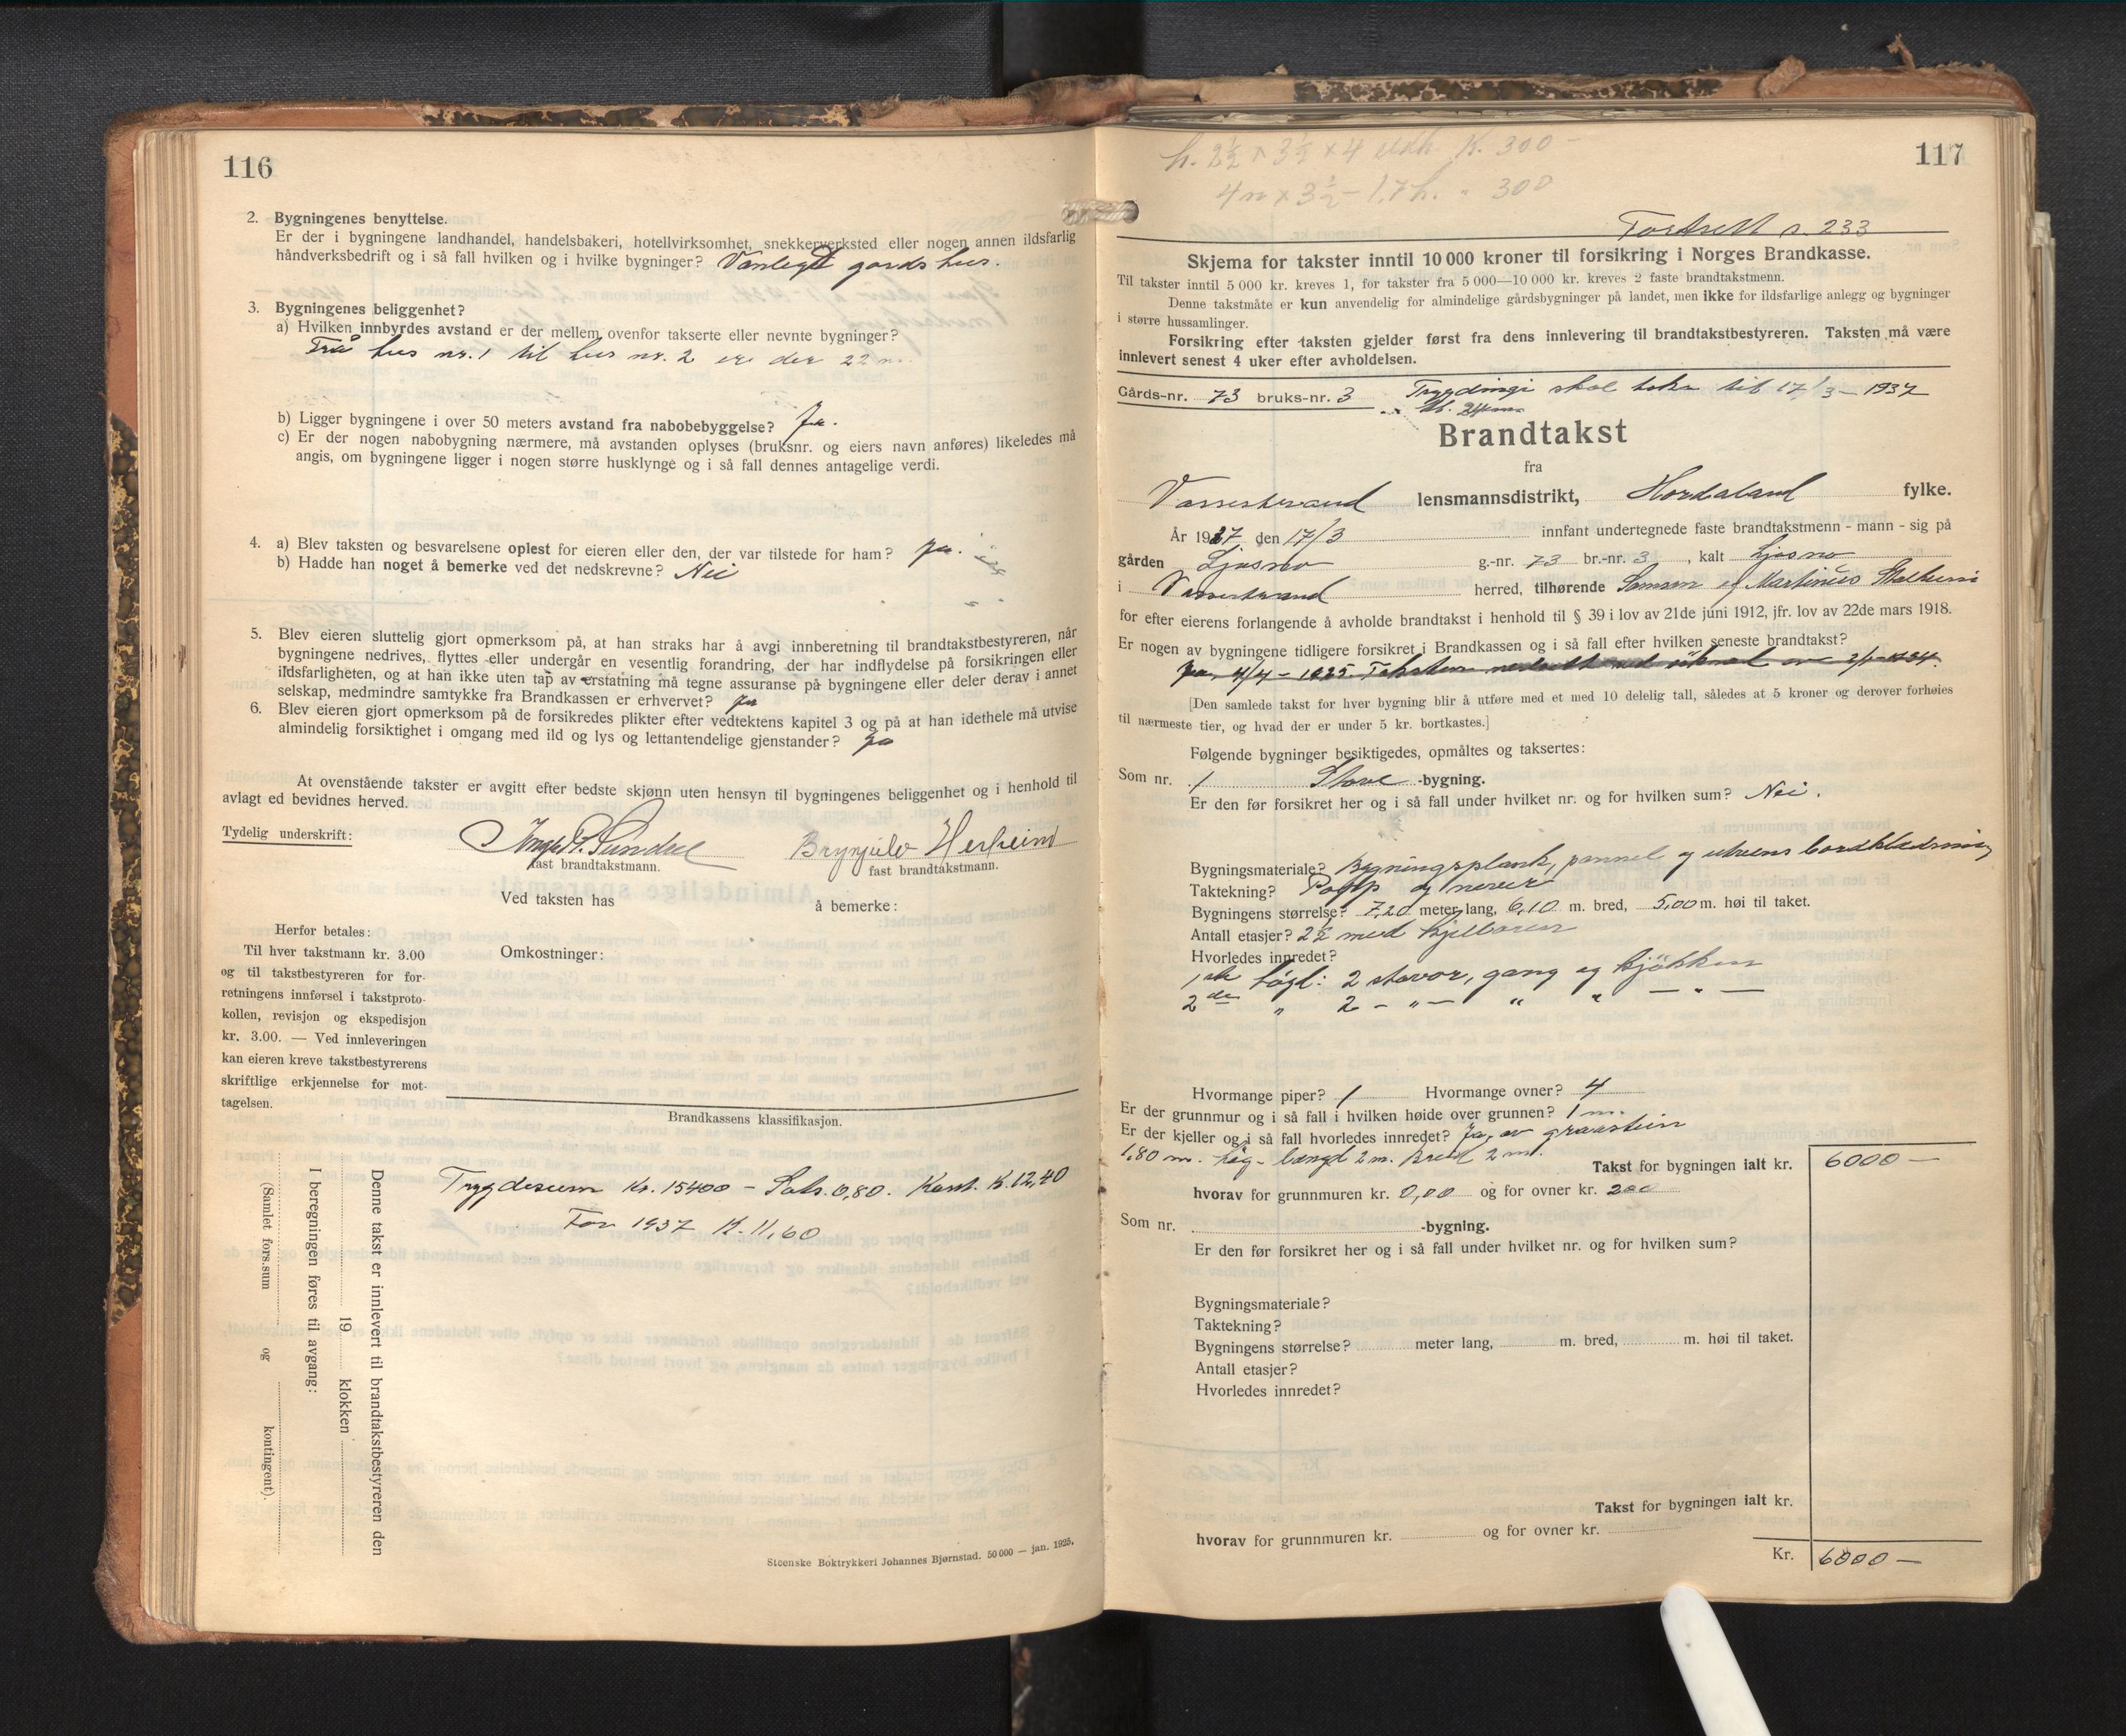 116
2. Bygningenes benyttelse.
Er der i bygningene landhandel, handelsbakeri, hotellvirksomhet, snekkerverksted eller nogen annen ildsfarlig
håndverksbedrift og i så fall hvilken og i hvilke bygninger? Vanlegt gards hus.
3. Bygningenes beliggenhet?
a) Hvilken innbyrdes avstand er der mellem ovenfor takserte eller nevnte bygninger?
Frå hus nr. 1 til hus nr. 2 er der 22 m.
b) Ligger bygningene i over 50 meters avstand fra nabobebyggelse? Ja.
c) Er der nogen nabobygning nærmere, må avstanden oplyses (bruksnr. og eiers navn anføres) likeledes må
angis, om bygningene ligger i nogen større husklynge og i så fall dennes antagelige verdi.
4. a) Blev taksten og besvarelsene oplest for eieren eller den, der var tilstede for ham? Ja.
b) Hadde han noget å bemerke ved det nedskrevne? Nei
5. Blev eieren sluttelig gjort opmerksom på, at han straks har å avgi innberetning til brandtakstbestyreren, når
bygningene nedrives, flyttes eller undergår en vesentlig forandring, der har indflydelse på forsikringen eller
ildsfarligheten, og at han ikke uten tap av erstatning må tegne assuranse på bygningene eller deler derav i annet
selskap, medmindre samtykke fra Brandkassen er erhvervet? Ja
6. Blev eieren gjort opmerksom på de forsikredes plikter efter vedtektens kapitel 3 og på at han idethele må utvise
almindelig forsiktighet i omgang med ild og lys og lettantendelige gjenstander? Ja
At ovenstående takster er avgitt efter bedste skjønn uten hensyn til bygningenes beliggenhet og i henhold til
avlagt ed bevidnes herved.
Tydelig underskrift: Brynjulv Herheim
fast brandtakstmann. fast brandtakstmann.
Ved taksten has å bemerke:
Herfor betales:
Til hver takstmann kr. 3.00
og til takstbestyreren for for-
retningens innførsel i takstproto-
kollen, revisjon og ekspedisjon
kr. 3.00. — Ved innleveringen
kan eieren kreve takstbestyrerens
skriftlige erkjennelse for mot-
tagelsen.
Omkostninger:
Brandkassens klassifikasjon.
Trygdesum Kr. 15400 - Sats. 0,80. Kont. K. 12,40
For 1937 K. 11,60
Denne takst er innlevert til brandtakstbestyreren den
19 klokken
I beregningen føres til avgang:
(Samlet fors.sum og kontingent).
Steenske Boktrykkeri Johannes Bjørnstad. 50 000 — jan. 1925.
117
h. 2½ × 3½ × 4 K. 300 -
4 m × 3½ - 1,7 h. " 300
Fordsett s. 233
Skjema for takster inntil 10 000 kroner til forsikring i Norges Brandkasse.
Til takster inntil 5 000 kr. kreves 1, for takster fra 5 000—10 000 kr. kreves 2 faste brandtakstmenn.
Denne takstmåte er kun anvendelig for almindelige gårdsbygninger på landet, men ikke for ildsfarlige anlegg og bygninger
i større hussamlinger.
Forsikring efter taksten gjelder først fra dens innlevering til brandtakstbestyreren. Taksten må være
innlevert senest 4 uker efter avholdelsen.
Gårds-nr. 73 bruks-nr. 3 Trygdingi skal taka til 17/3 - 1937
Brandtakst
fra
Vossestrand lensmannsdistrikt, Hordaland fylke.
År 1937 den 17/3 innfant undertegnede faste brandtakstmenn - mann - sig på
gården Ljosno g.-nr. 73 br.-nr. 3, kalt Ljosno
i Vossestrand herred, tilhørende Samson og Martinus Stalheim
for efter eierens forlangende å avholde brandtakst i henhold til § 39 i lov av 21de juni 1912, jfr. lov av 22de mars 1918.
Er nogen av bygningene tidligere forsikret i Brandkassen og i så fall efter hvilken seneste brandtakst?
[Den samlede takst for hver bygning blir å utføre med et med 10 delelig tall, således at 5 kroner og derover forhøies
til nærmeste tier, og hvad der er under 5 kr. bortkastes.]
Følgende bygninger besiktigedes, opmåltes og taksertes:
Som nr. 1 Stove -bygning.
Er den før forsikret her og i så fall under hvilket nr. og for hvilken sum? Nei.
Bygningsmateriale? Bygningsplank, pannel og utvens bordklædning
Taktekning? Papp og never
Bygningens størrelse? 7,20 meter lang, 6,10 m. bred, 5,00 m. høi til taket.
Antall etasjer? 2½ med kjellaren
Hvorledes innredet?
1ste høgd: 2 stovor, gang og kjökken
2de " 2 - " - " " - " -
Hvormange piper? 1 Hvormange ovner? 4
Er der grunnmur og i så fall i hvilken høide over grunnen? 1 m.
Er der kjeller og i så fall hvorledes innredet? Ja, av graastein
1,80 m. høg - længd 2 m. Breid 2 m.
Takst for bygningen ialt kr. 6000 —
hvorav for grunnmuren kr. 0,00 og for ovner kr. 200
Som nr. -bygning.
Er den før forsikret her og i så fall under hvilket nr. og for hvilken sum?
Bygningsmateriale?
Taktekning?
Bygningens størrelse? meter lang, m. bred, m. høi til taket.
Antall etasjer?
Hvorledes innredet?
Takst for bygningen ialt kr.
hvorav for grunnmuren kr. og for ovner kr.
Kr. 6000 —